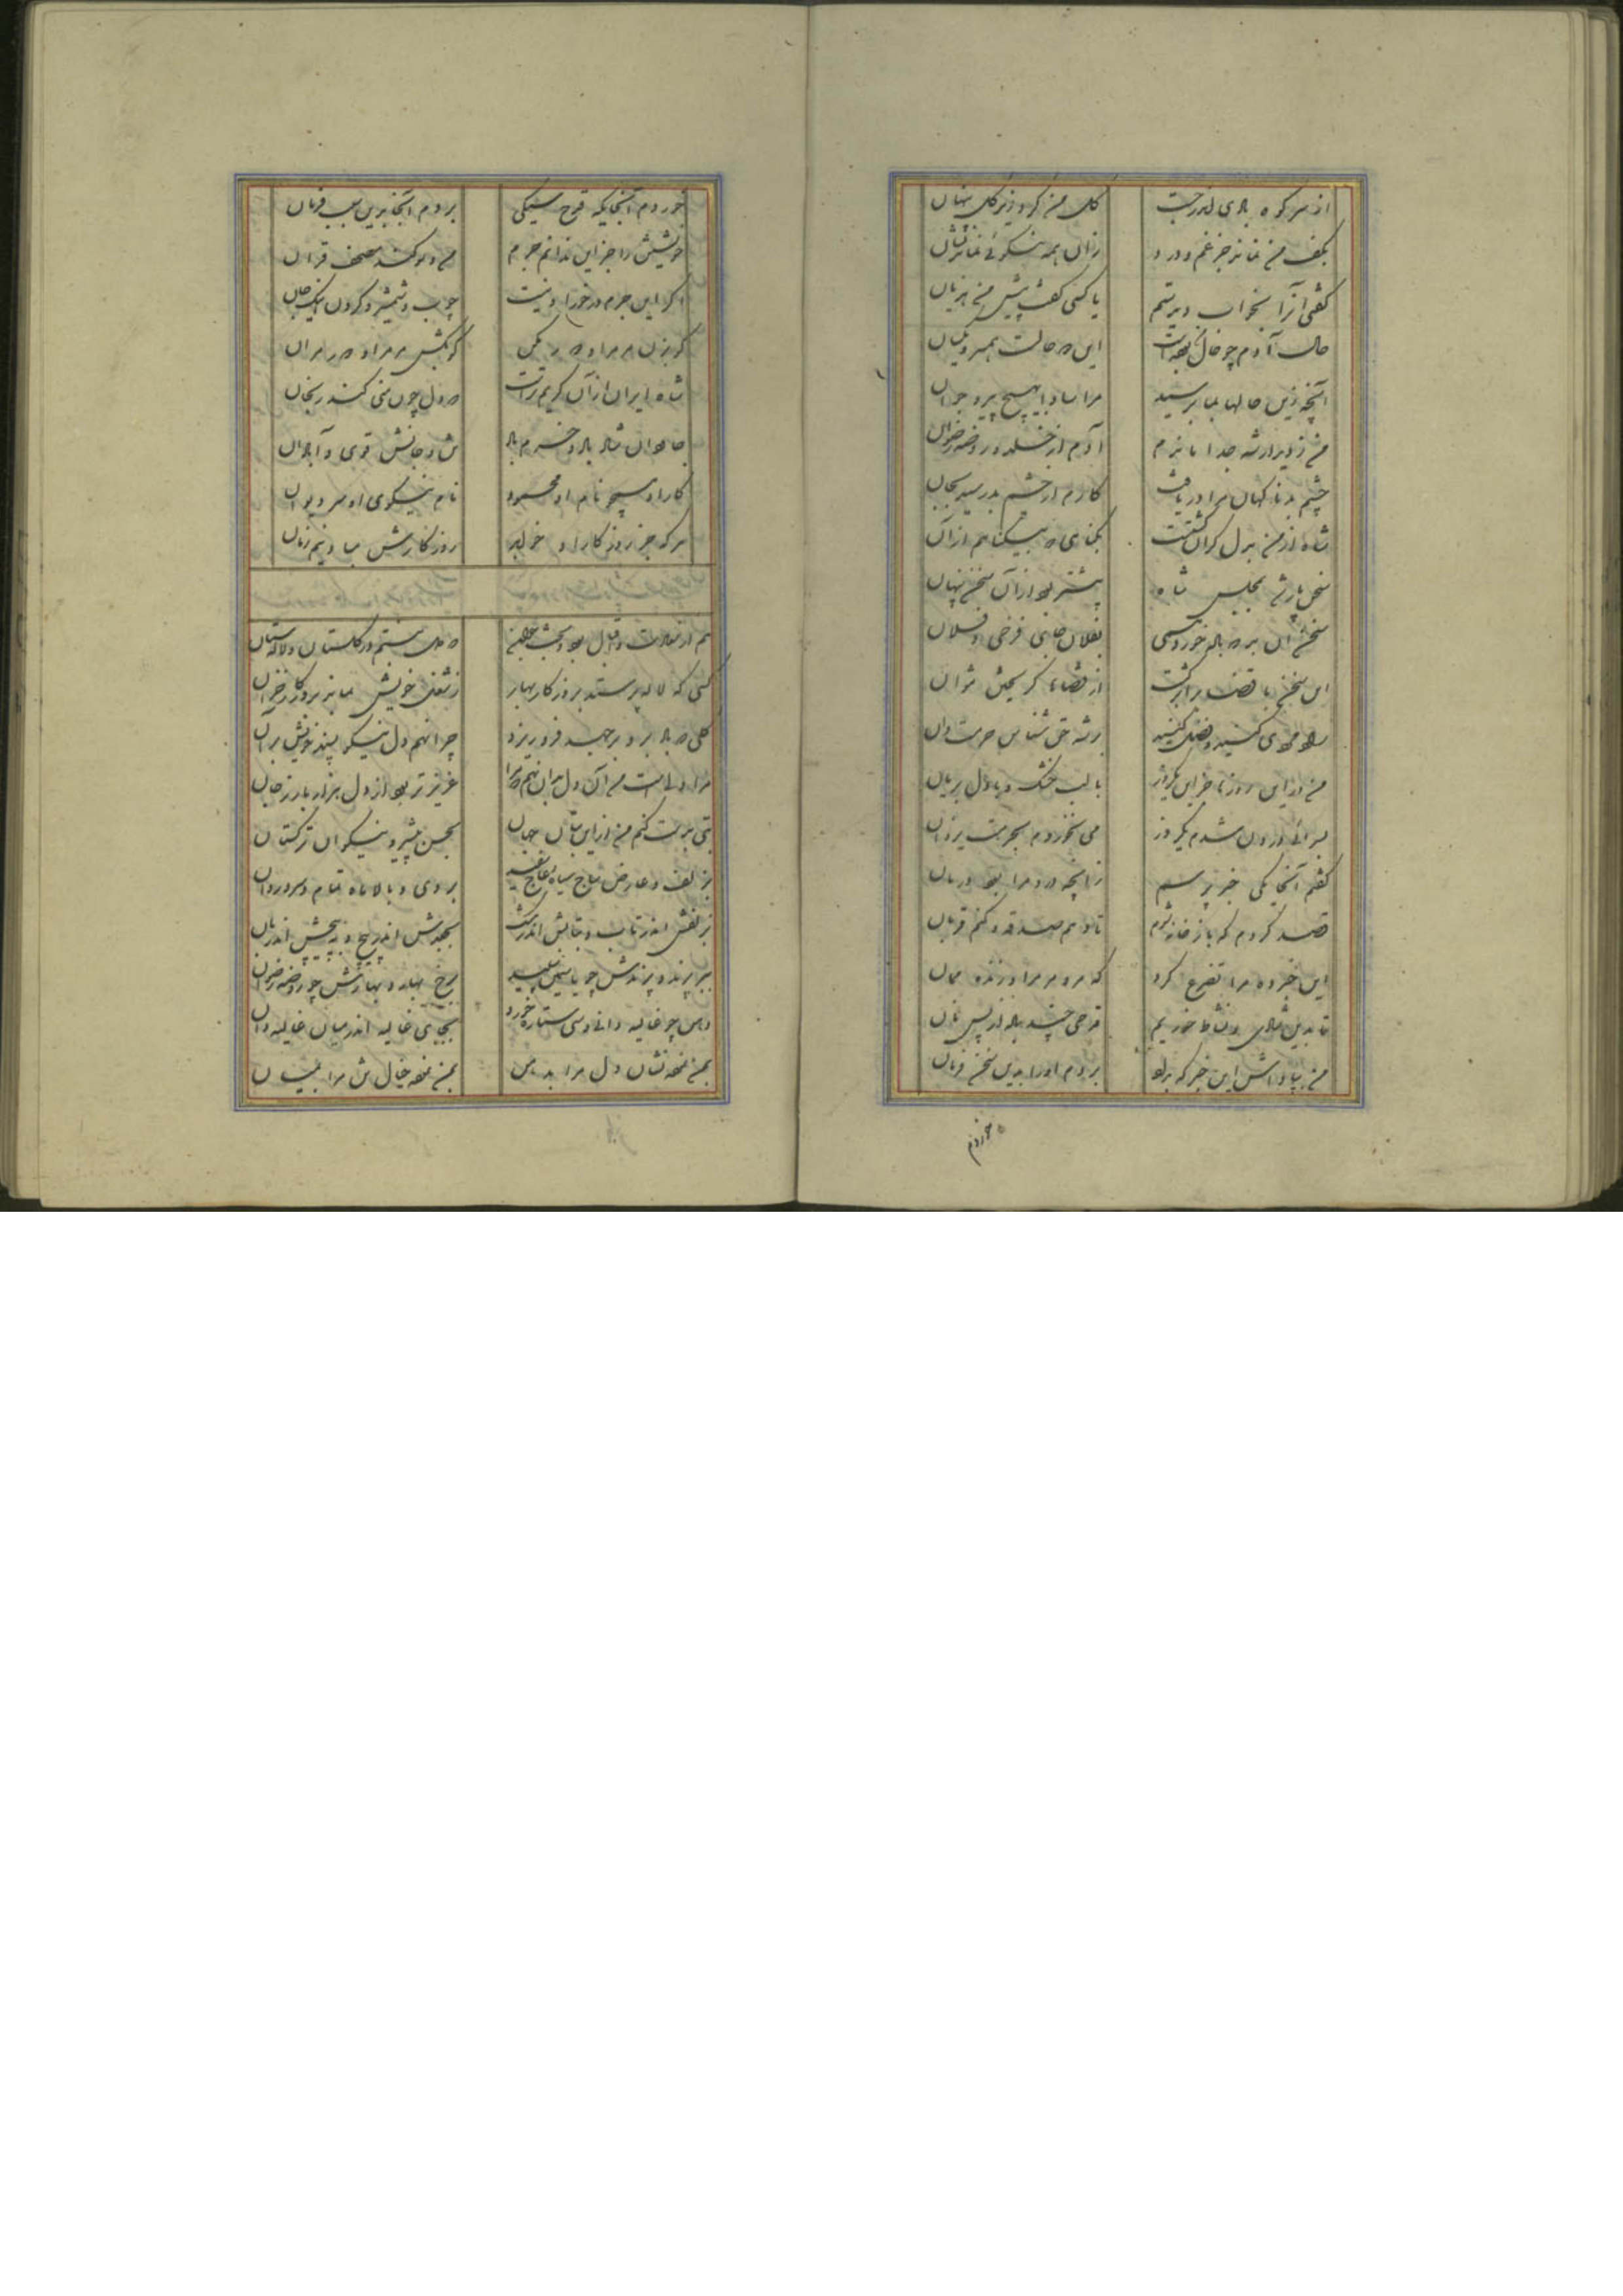 از سر کوه بادی اندر جست
گل من کرد زیر گل پنهان
بکف من نماند جز غم و درد
زان همه نیکوئی نماند نشان
گفتی آنرا بخواب دیدستم
یا کسی گفت پیش من هزیان
حال آدم چو حال من بوده است
این دو حالست همبر و یکسان
آنچه زین حالها بما برسید
مرساد ایچ بهیچ پیر و جوان
من ز دیدار شه جدا ماندم
آدم از خلد و روضه رضوان
چشم بد ناگهان مرا دریافت
کارم از چشم بد رسید بجان
شاه از من بدل گران گشتست
بگناهی که بیگناهم از آن
سخنی باز شد بمجلس شاه
بیشتر بود از آن سخن بهتان
سخن آن بد که باده خورد همی
بفلان جای فرخی و فلان
این سخن با قضا برابر گشت
از قضاها گریختن نتوان
راد مردی کنید و فضل کنید
بر شه حق شناس حرمت دان
من در این روزها جز این یکروز
می نخوردم بحرمت یزدان
بسرائی درون شدم یکروز
با لب خشک و با دل بریان
گفتم آنجا یکی خبر پرسم
زانچه درد مرا بود درمان
قصد کردم که باز خانه شوم
تا دهم صدقه و کنم قربان
این خبر ده مرا تضرع کرد
که مرو مر مرا بزنده ممان
تا بدین شادی و نشاط خوریم
قدحی چند باده از پس نان
من بپاداش این خبر که بداد
بردم او را بدین سخن فرمان
خوردم
خوردم آنجایگه قدح سیکی
بودم آنجا بدین سبب فرمان
خویشتن را جز این ندانم جرم
من و سوگند مصحف قرآن
اگر این جرم در خور ادبست
چوب و شمشیر و گردن اینک و جان
گو بزن مر مرا و دور مکن
گو بکش مر مرا و دور مران
شاه ایران از آن کریمترست
که دل چون منی کند رنجان
جاودان شاد باد و خرم باد
تن و جانش قوی و آبادان
کار او همچو نام او محمود
نام نیکوی او سر دیوان
هر که جز روزگار او خواهد
روزگارش مباد نیم زمان
هم از سعادت و اقبال بود و بخت جوان
که دل نبستم در گلستان و لاله ستان
کسی که لاله پرستد بروزگار بهار
ز شغل خویش بماند بروزگار خزان
گلی که باد برو برجهد فرو ریزد
چرا نهم دل نیکو پسند خویش بر آن
مرا دلیست من آن دل بدان نهم که مرا
عزیزتر بود از دل هزار بار ز جان
بتی بدست کنم من از این بتان جهان
بحسن پیشرو نیکوان ترکستان
بزلف و عارض ساج سیاه و عاج سفید
بروی و بالا ماه تمام و سرو روان
بزلفش اندر تاب و بتابش اندر مشک
بجعدش اندر پیچ و بپیچش اندر بان
ببر پرند و پرندش چو یاسمین سپید
برخ بهار و بهارش چو روضه رضوان
دهن چو غالیه دانی و سی ستاره خرد
بجای غالیه اندر میان غالیه دان
بمن نموده نشان دل مرا بدهن
بمن نموده خیال تن مرا بمیان